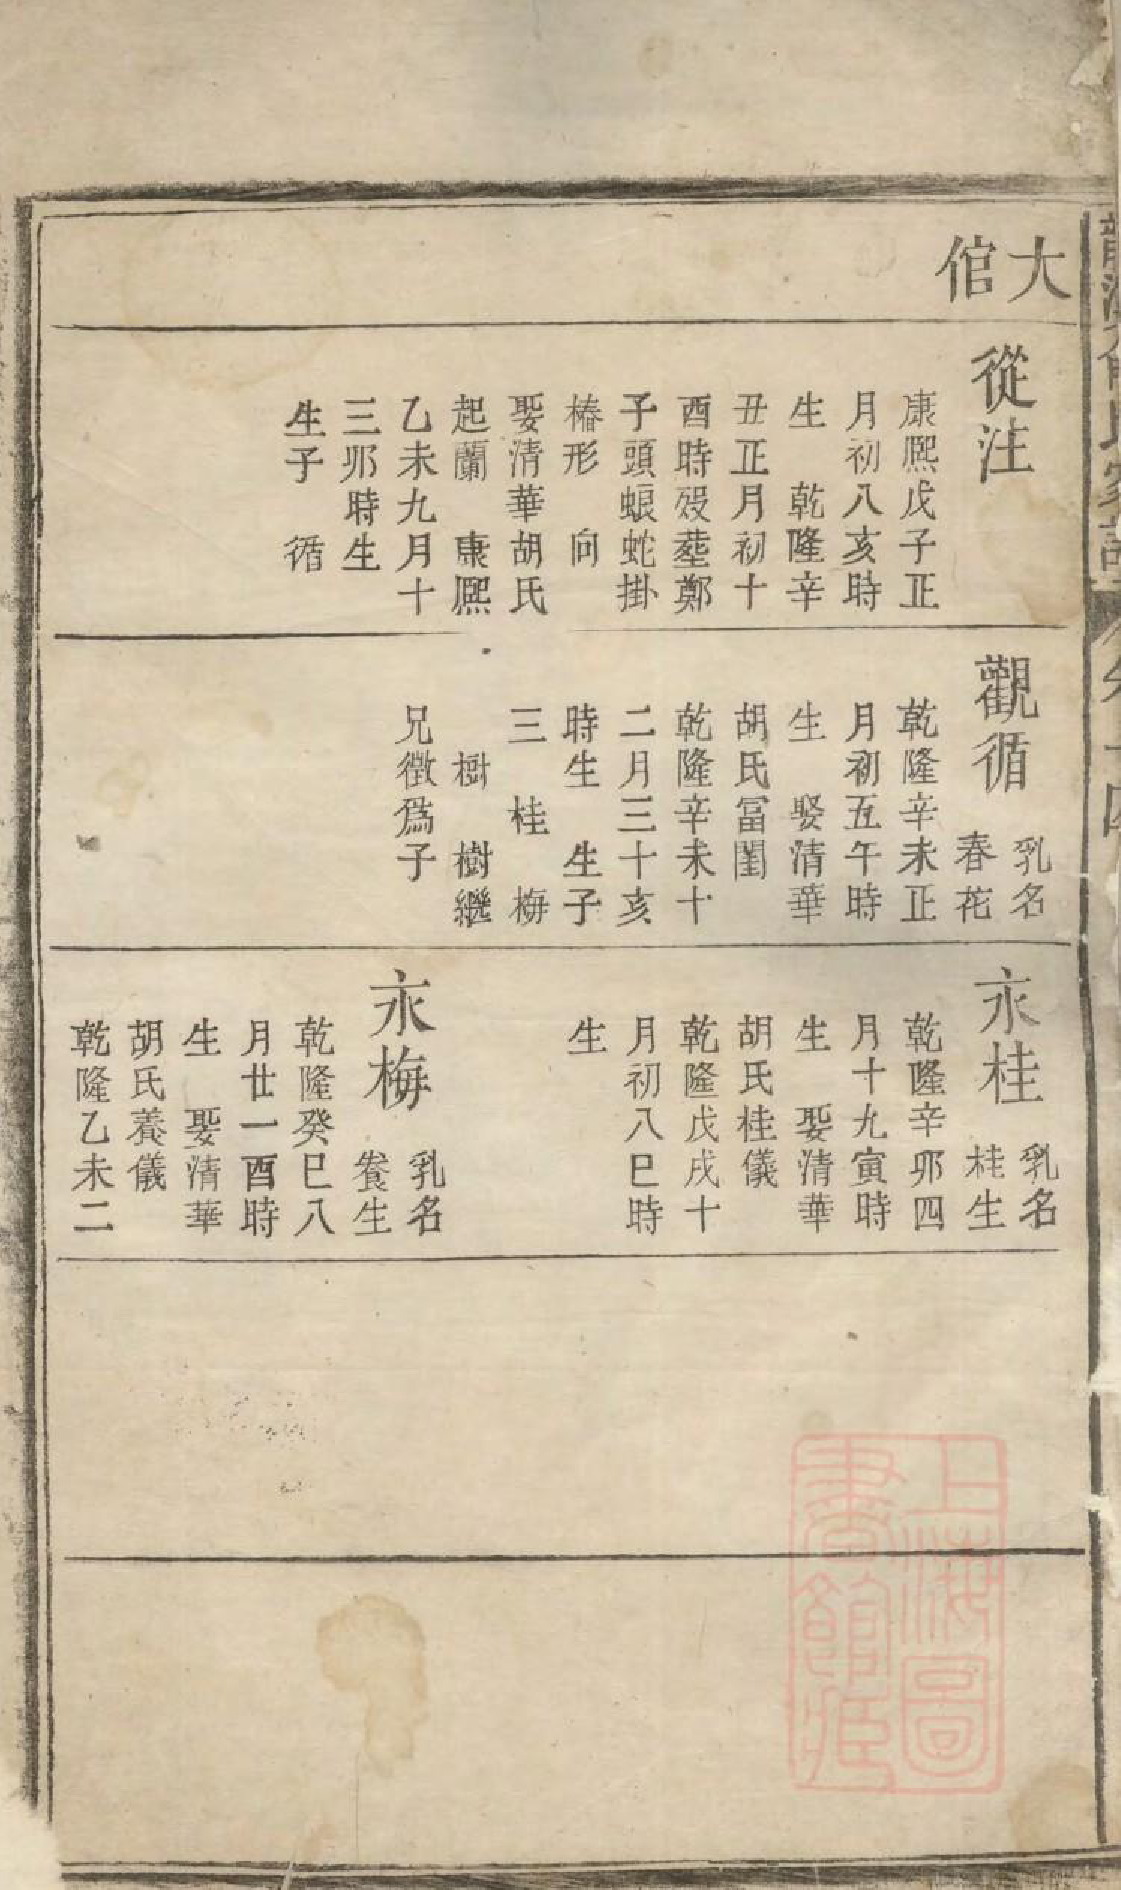 大
倌
從注
康熙戊子正
月初八亥時
生　乾隆辛
丑正月初十
酉時歿塟鄭
子頭蜋蛇掛
椿形　向
娶清華胡氏
起蘭　康熙
乙未九月十
三夘時生
生子　循
觀循
乳名
春花
乾隆辛未正
月初五午時
生　娶清華
胡氏冨閨
乾隆辛未十
二月三十亥
時生　生子
三　桂　梅
樹　樹繼
兄徵爲子
永桂
乳名
桂生
乾隆辛夘四
月十九寅時
生　娶清華
胡氏桂儀
乾隆戊戌十
月初八巳時
生
永梅
乳名
養生
乾隆癸巳八
月廿一酉時
生　娶清華
胡氏養儀
乾隆乙未二
上海圖
書館藏